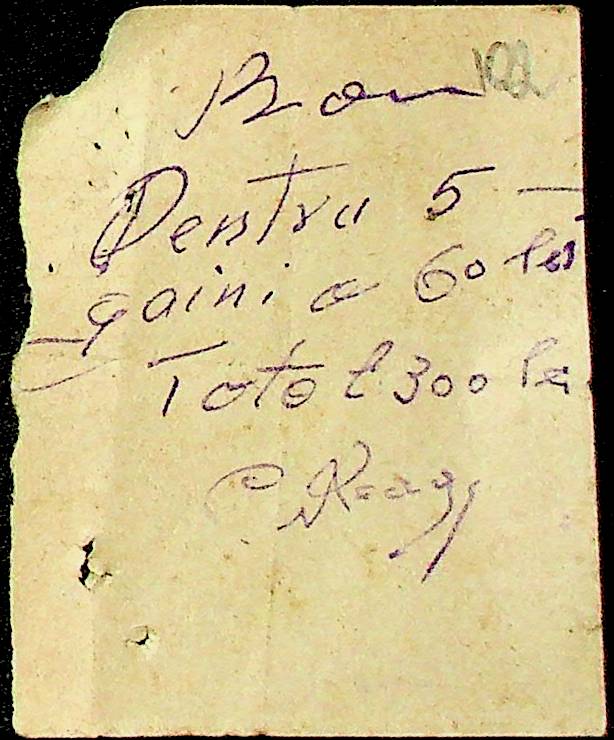 Bon 122
Pentru 5 —
gaini a 60 lei
Total 300 lei